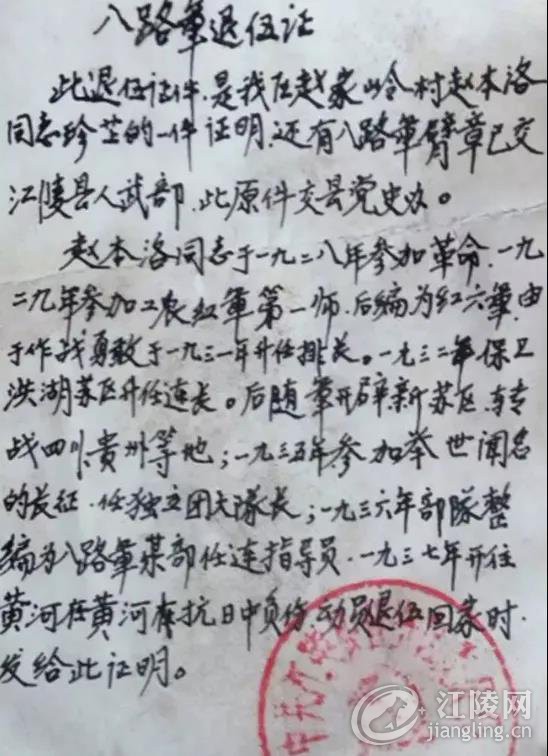 八路军退伍证
此退伍证件,是我区赵家岭村赵本洛
同志珍芷的一件证明,还有八路军臂章已交
江陵县人武部,此原件交县党史办。
赵本洛同志于一九二八年参加革命,一九
二九年参加工农红军第一师,后编为红六军,由
于作战勇敢于一九三一年升任排长。一九三二年保卫
洪湖苏区升任连长。后随军开辟新苏区,转
战四川、贵州等地;一九三五年参加举世闻名
的长征,任独立团大队长;一九三六年部队整
编为八路军某部任连指导员,一九三七年开往
黄河,在黄河抗日中负伤,动员退伍回家时,
发给此证明。
江陵网
jiangling.cn